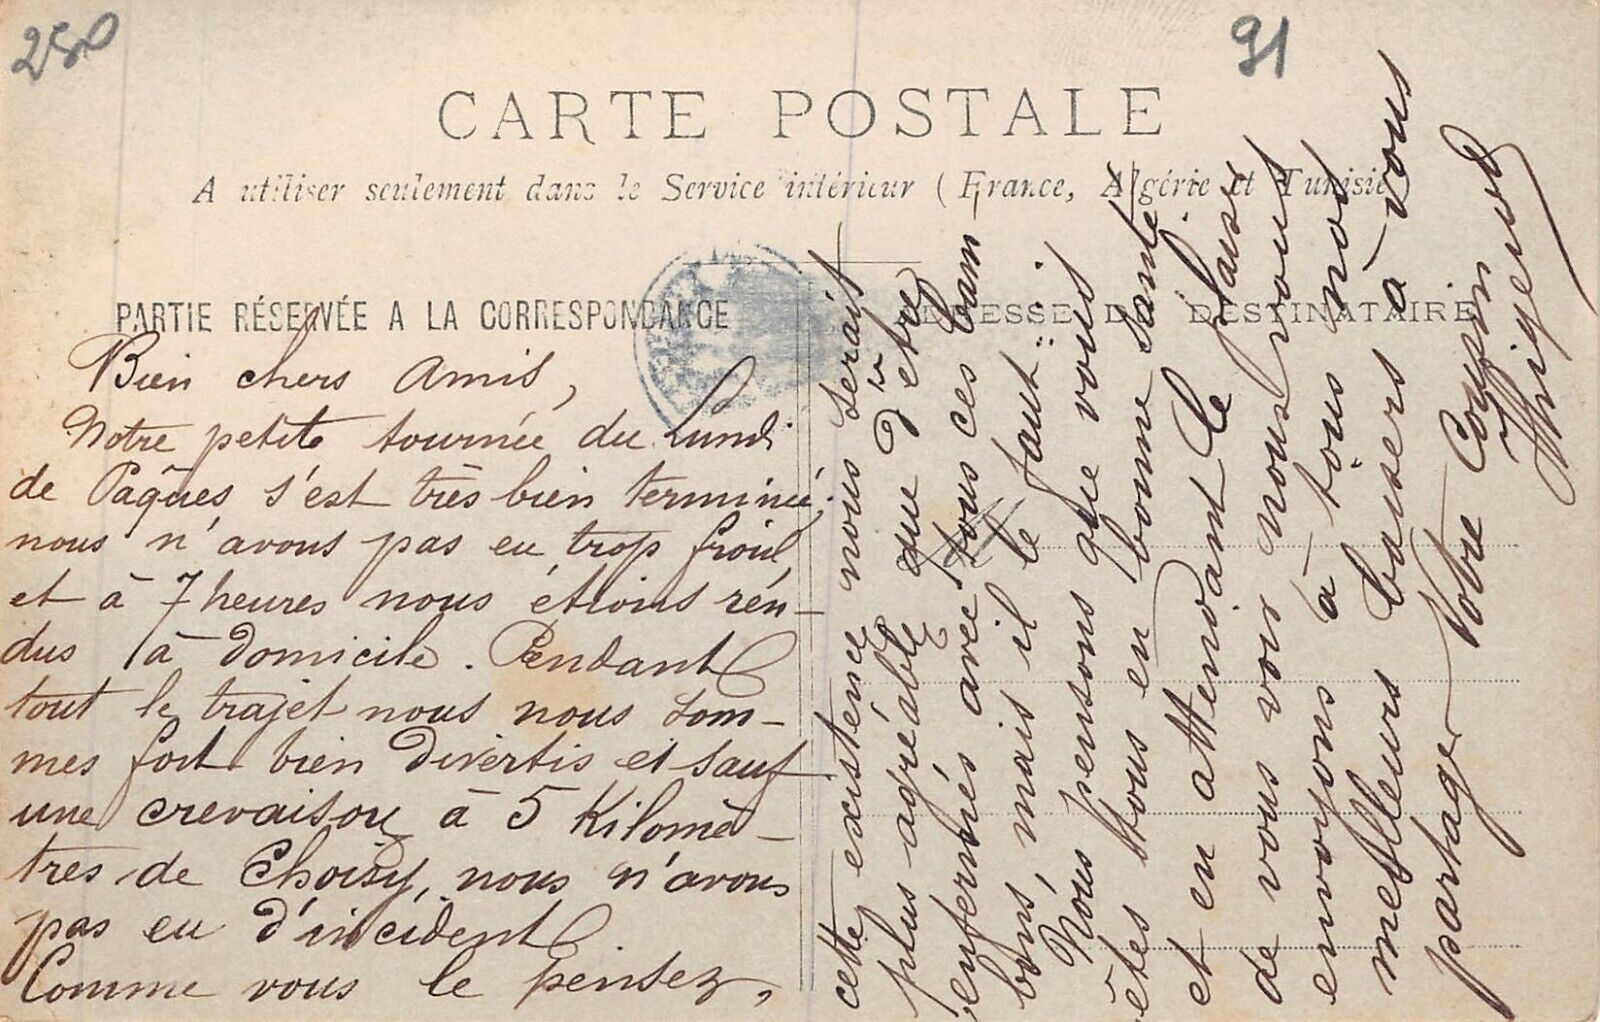 280
91
CARTE POSTALE
A utiliser seulement dans le Service intérieur (France, Algérie et Tunisie
PARTIE RÉSERVÉE A LA CORRESPONDANCE
ADRESSE DU DESTINATAIRE
Bien chers Amis,
Notre petite tournée du Lundi
de Pâques s'est très bien terminée;
nous n'avons pas eu trop froid
et à 7 heures nous étions rén-
dus à domicile. Pendant
tout le trajet nous nous som-
mes fort bien divertis et sauf
une crevaison à 5 Kilomè-
tres de Choisy, nous n'avons
pas eu d'incident.
Comme vous le pensez,
cette existence nous serait
plus agréable que d'être
enfermés avec tous ces bam-
bons, mais il le faut..
Nous pensons que vous
êtes tous en bonne santé
et en attendant le plaisir
de vous voir nous vous
envoyons à tous nos
meilleurs baisers à vous
partager Votre Cousin